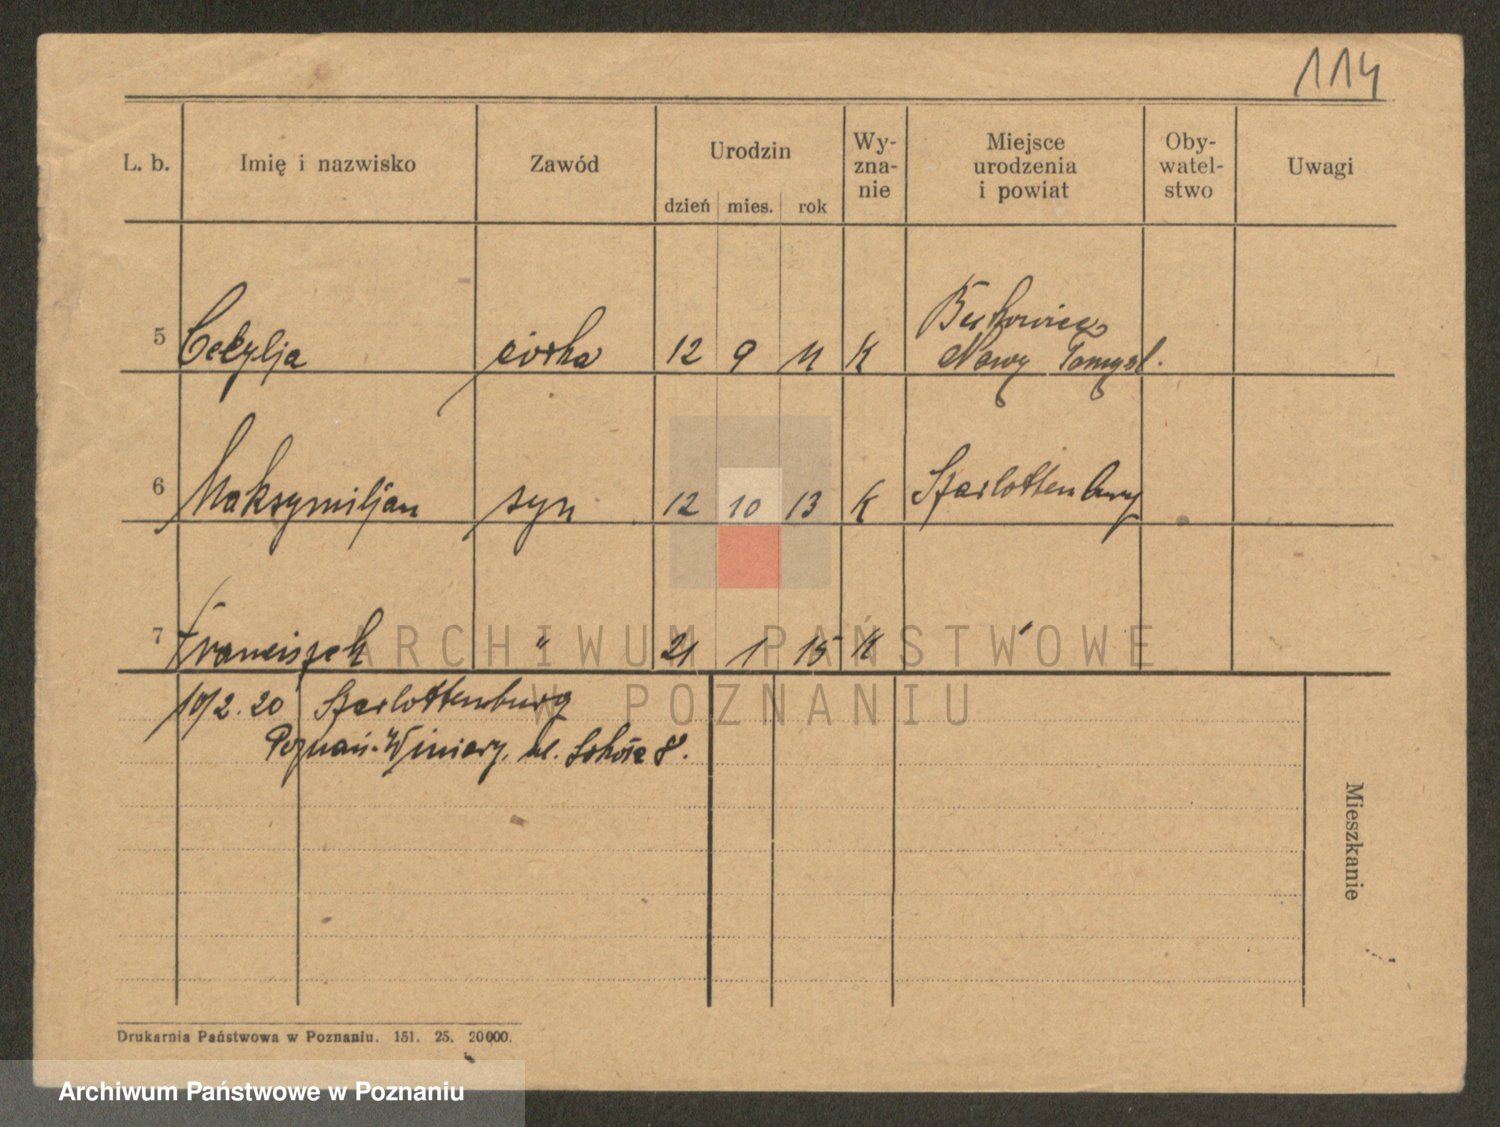 114
L. b. Imię i nazwisko Zawód Urodzin Wy- Miejsce Oby- Uwagi
zna- urodzenia watel-
nie i powiat stwo
dzień mies. rok
Bukowiec
5 Cecylja córka 12 9 11 K Nowy Tomyśl.
6 Maksymiljan syn 12 10 13 K Szarlottenburg
7 Franciszek " 21 1 15 K "
10/2. 20 Szarlottenburg
Poznań-Winiary, ul. 8.
Mieszkanie
ARCHIWUM PAŃSTWOWE
W POZNANIU
Drukarnia Państwowa w Poznaniu. 151. 25. 20000.
Archiwum Państwowe w Poznaniu